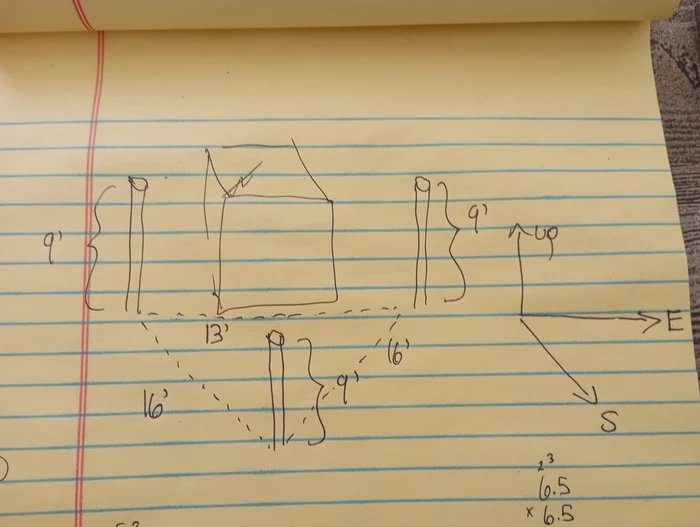 9'
9'
up
E
13'
16'
9'
16'
S
2 3
6.5
x 6.5